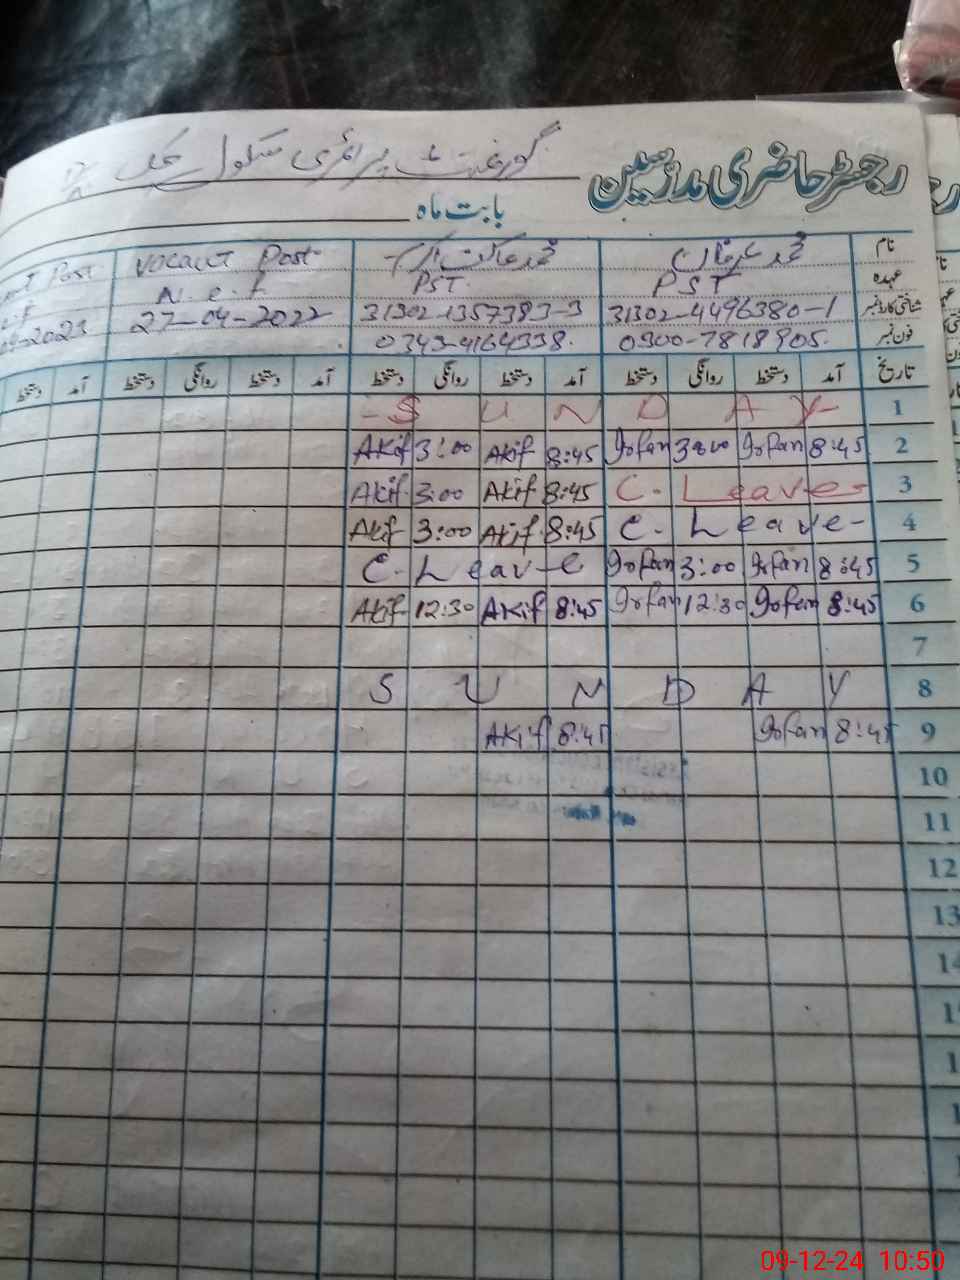 گورنمنٹ پرائمری سکول چک
رجسٹر حاضری مدرسین
بابت ماہ
نام محمد عرفان محمد عاکف vacant Post Post
عہدہ PST PST. N.e.f
شناختی کارڈ نمبر 31302-4496380-1 31302-1357383-3 27-04-2022 -2023
فون نمبر 0300-7818905. 0343-4164338.
تاریخ آمد دستخط روانگی دستخط آمد دستخط روانگی دستخط آمد دستخط روانگی دستخط آمد دستخط
- S U N D A Y - 1
Akif 3:00 Akif 8:45 Irfan 3:00 Irfan 8:45 2
Akif 3:00 Akif 8:45 C. Leave- 3
Akif 3:00 Akif 8:45 C. Leave- 4
C. Leave Irfan 3:00 Irfan 8:45 5
Akif 12:30 Akif 8:45 Irfan 12:30 Irfan 8:45 6
7
S U N D A Y 8
Akif 8:45 Irfan 8:45 9
10
11
12
13
14
09-12-24 10:50